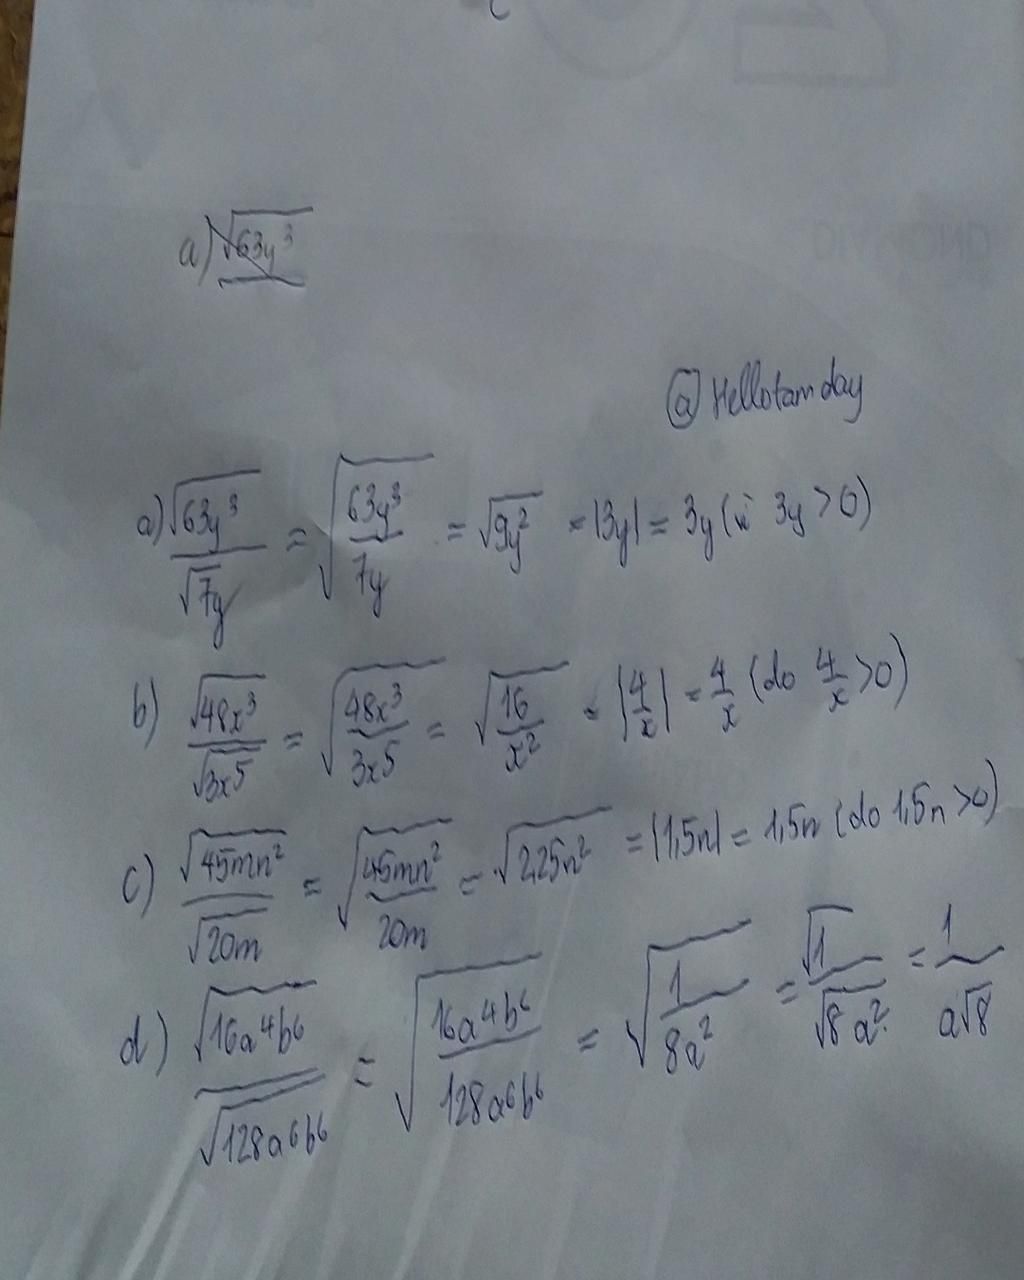 a) √63y³
@ Hellotamday
a) √63y³/√7y = √(63y³/7y) = √9y² = |3y| = 3y (vì 3y > 0)
b) √48x³/√3x⁵ = √(48x³/3x⁵) = √(16/x²) = |4/x| = 4/x (do 4/x > 0)
c) √45mn²/√20m = √(45mn²/20m) = √2,25n² = |1,5n| = 1,5n (do 1,5n > 0)
d) √16a⁴b⁶/√128a⁶b⁶ = √(16a⁴b⁶/128a⁶b⁶) = √(1/8a²) = √1/√8a² = 1/a√8